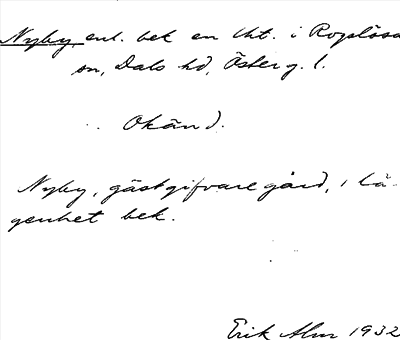 Nyby, enl. bek en lht. i Rogslösa
sn, Dals hd, Österg. l.
Okänd.
Nyby, gästgifvaregård, i lä-
genhet bek.
Erik Alm 1932